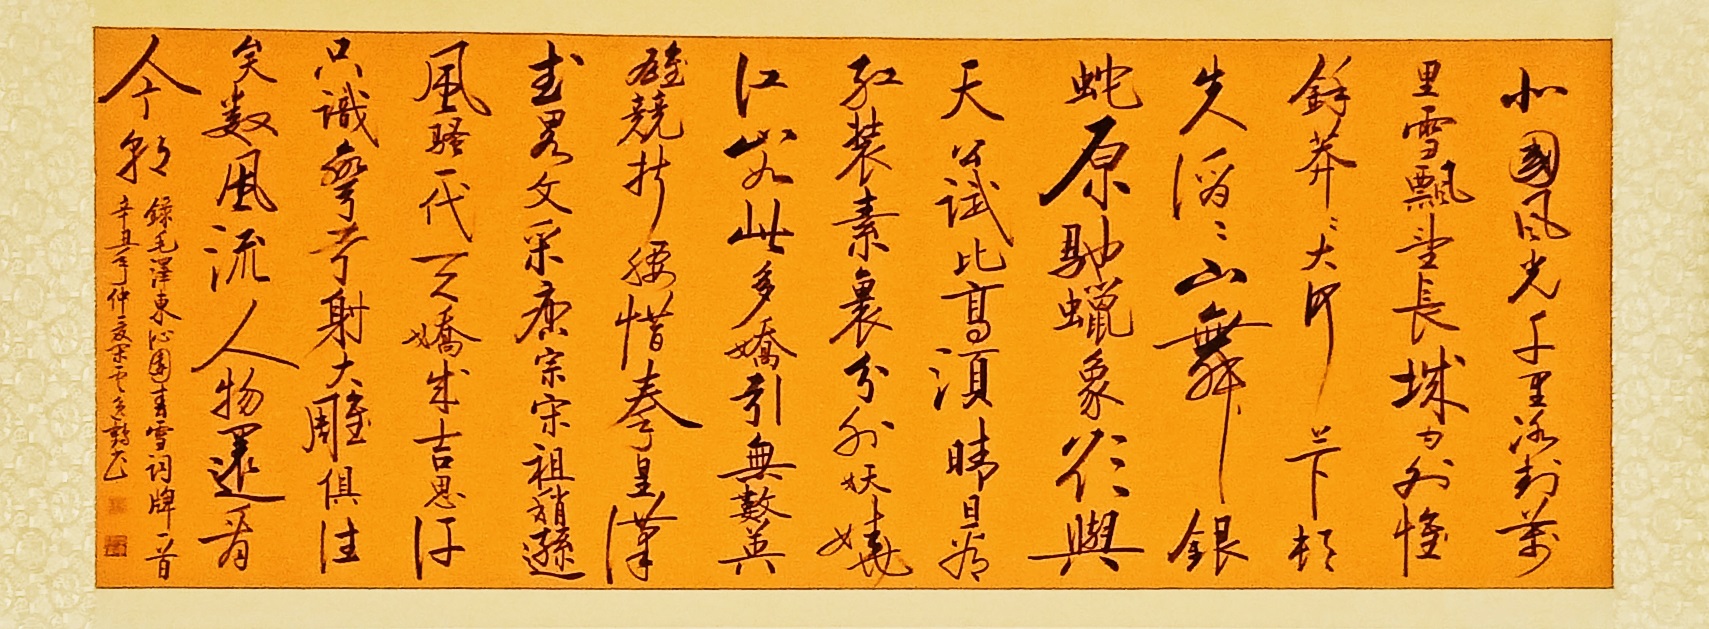 北國風光千里冰封萬
里雪飄望長城內外惟
餘莽〻大河上下頓
失滔〻山舞銀
蛇原馳蠟象欲與
天公試比高須晴日看
紅裝素裹分外妖嬈
江山如此多嬌引無數英
雄競折腰惜秦皇漢
武畧文采唐宗宋祖稍遜
風騷一代天嬌成吉思汗
只識彎弓射大雕俱往
矣数風流人物還看
今朝
錄毛澤東沁園春雪詞牌一首
辛丑年仲夏